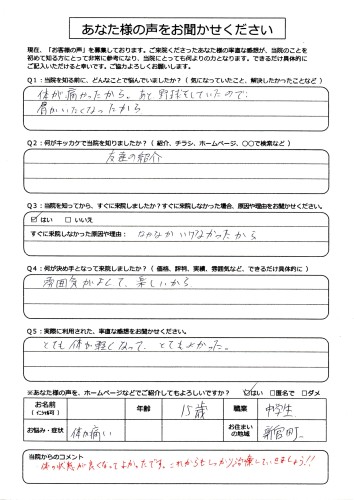 あなた様の声をお聞かせください
現在、「お客様の声」を募集しております。ご来院くださったあなた様の率直な感想が、当院のことを
初めて知る方にとって非常に参考になり、当院にとっても何よりの力となります。できるだけ具体的に
ご記入いただけると幸いです。ご協力よろしくお願いします。
Q1：当院を知る前に、どんなことで悩んでいましたか？（ 気になっていたこと、解決したかったことなど ）
体が痛かったから。あと野球をしていたので
肩がいたくなったから
Q2：何がキッカケで当院を知りましたか？（ 紹介、チラシ、ホームページ、〇〇で検索など ）
友達の紹介
Q3：当院を知ってから、すぐに来院しましたか？すぐに来院しなかった場合、原因や理由をお聞かせください。
☑ はい □ いいえ
すぐに来院しなかった原因や理由： なかなかいけなかったから
Q4：何が決め手となって来院しましたか？（ 価格、評判、実績、雰囲気など、できるだけ具体的に ）
雰囲気がよくて、楽しいから
Q5：実際に利用された、率直な感想をお聞かせください。
とても体が軽くなって、とてもよかった。
※あなた様の声を、ホームページなどでご紹介してもよろしいですか？ ☑はい □匿名で □ダメ
お名前 年齢 15歳 職業 中学生
（ ｲﾆｼｬﾙ可 ）
お悩み・症状 体が痛い お住まいの地域 新宮町
当院からのコメント
体の状態が良くなってよかったです。これからもしっかり治療していきましょう!!